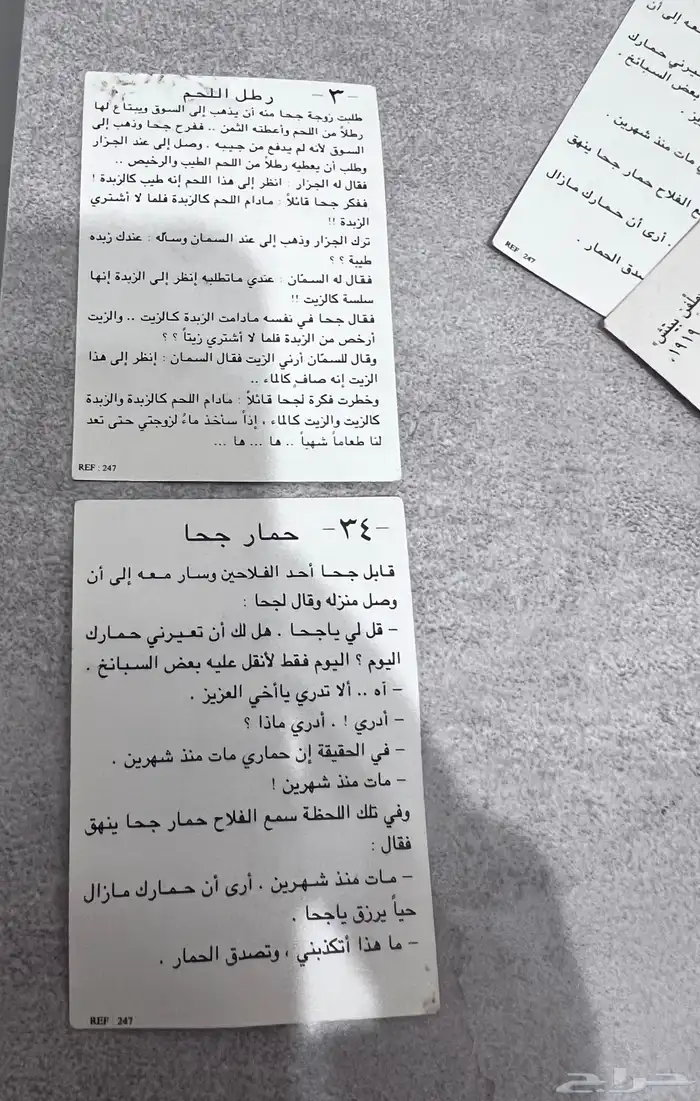 -٣- رطل اللحم
طلبت زوجة جحا منه أن يذهب إلى السوق ويبتاع لها
رطلاً من اللحم وأعطته الثمن .. ففرح جحا وذهب إلى
السوق لأنه لم يدفع من جيبه . وصل إلى عند الجزار
وطلب أن يعطيه رطلاً من اللحم الطيب والرخيص ..
فقال له الجزار : انظر إلى هذا اللحم إنه طيب كالزبدة !
ففكر جحا قائلاً : مادام اللحم كالزبدة فلما لا أشتري
الزبدة !!
ترك الجزار وذهب إلى عند السمان وسأله : عندك زبده
طيبة ؟ ؟
فقال له السمّان : عندي ماتطلبه إنظر إلى الزبدة إنها
سلسة كالزيت !!
فقال جحا في نفسه مادامت الزبدة كالزيت .. والزيت
أرخص من الزبدة فلما لا أشتري زيتاً ؟ ؟
وقال للسمّان أرني الزيت فقال السمان : إنظر إلى هذا
الزيت إنه صافٍ كالماء ..
وخطرت فكرة لجحا قائلاً : مادام اللحم كالزبدة والزبدة
كالزيت والزيت كالماء ، إذاً سآخذ ماءً لزوجتي حتى تعد
لنا طعاماً شهياً .. ها ... ها ...
REF : 247
-٣٤- حمار جحا
قابل جحا أحد الفلاحين وسار معه إلى أن
وصل منزله وقال لجحا :
- قل لي ياجحا . هل لك أن تعيرني حمارك
اليوم ؟ اليوم فقط لأنقل عليه بعض السبانخ .
- آه .. ألا تدري ياأخي العزيز .
- أدري ! . أدري ماذا ؟
- في الحقيقة إن حماري مات منذ شهرين .
- مات منذ شهرين !
وفي تلك اللحظة سمع الفلاح حمار جحا ينهق
فقال :
- مات منذ شهرين . أرى أن حمارك مازال
حياً يرزق ياجحا .
- ما هذا أتكذبني ، وتصدق الحمار .
REF : 247
معه إلى أن
تعيرني حمارك
بعض السبانخ .
مات منذ شهرين .
الفلاح حمار جحا ينهق
. أرى أن حمارك مازال
تصدق الحمار .
REF : 247
١٩١٩،
حراج